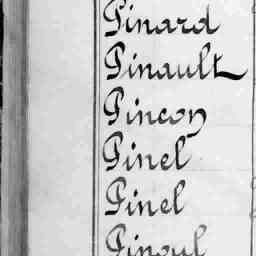 Pinard
Pinault
Pincon
Pinel
Pinel
Pinoul